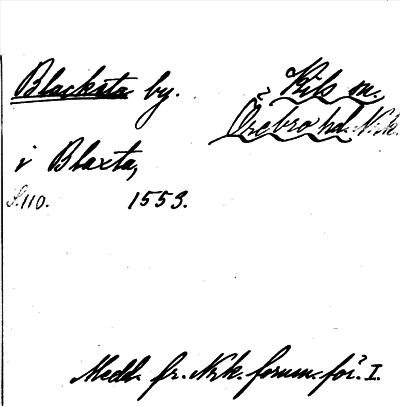 Blacksta by.
Kils sn.
Örebro hd. Nrk.
i Blaxta,
S. 110. 1553.
Medd. fr. Nrk. fornm. för. I.